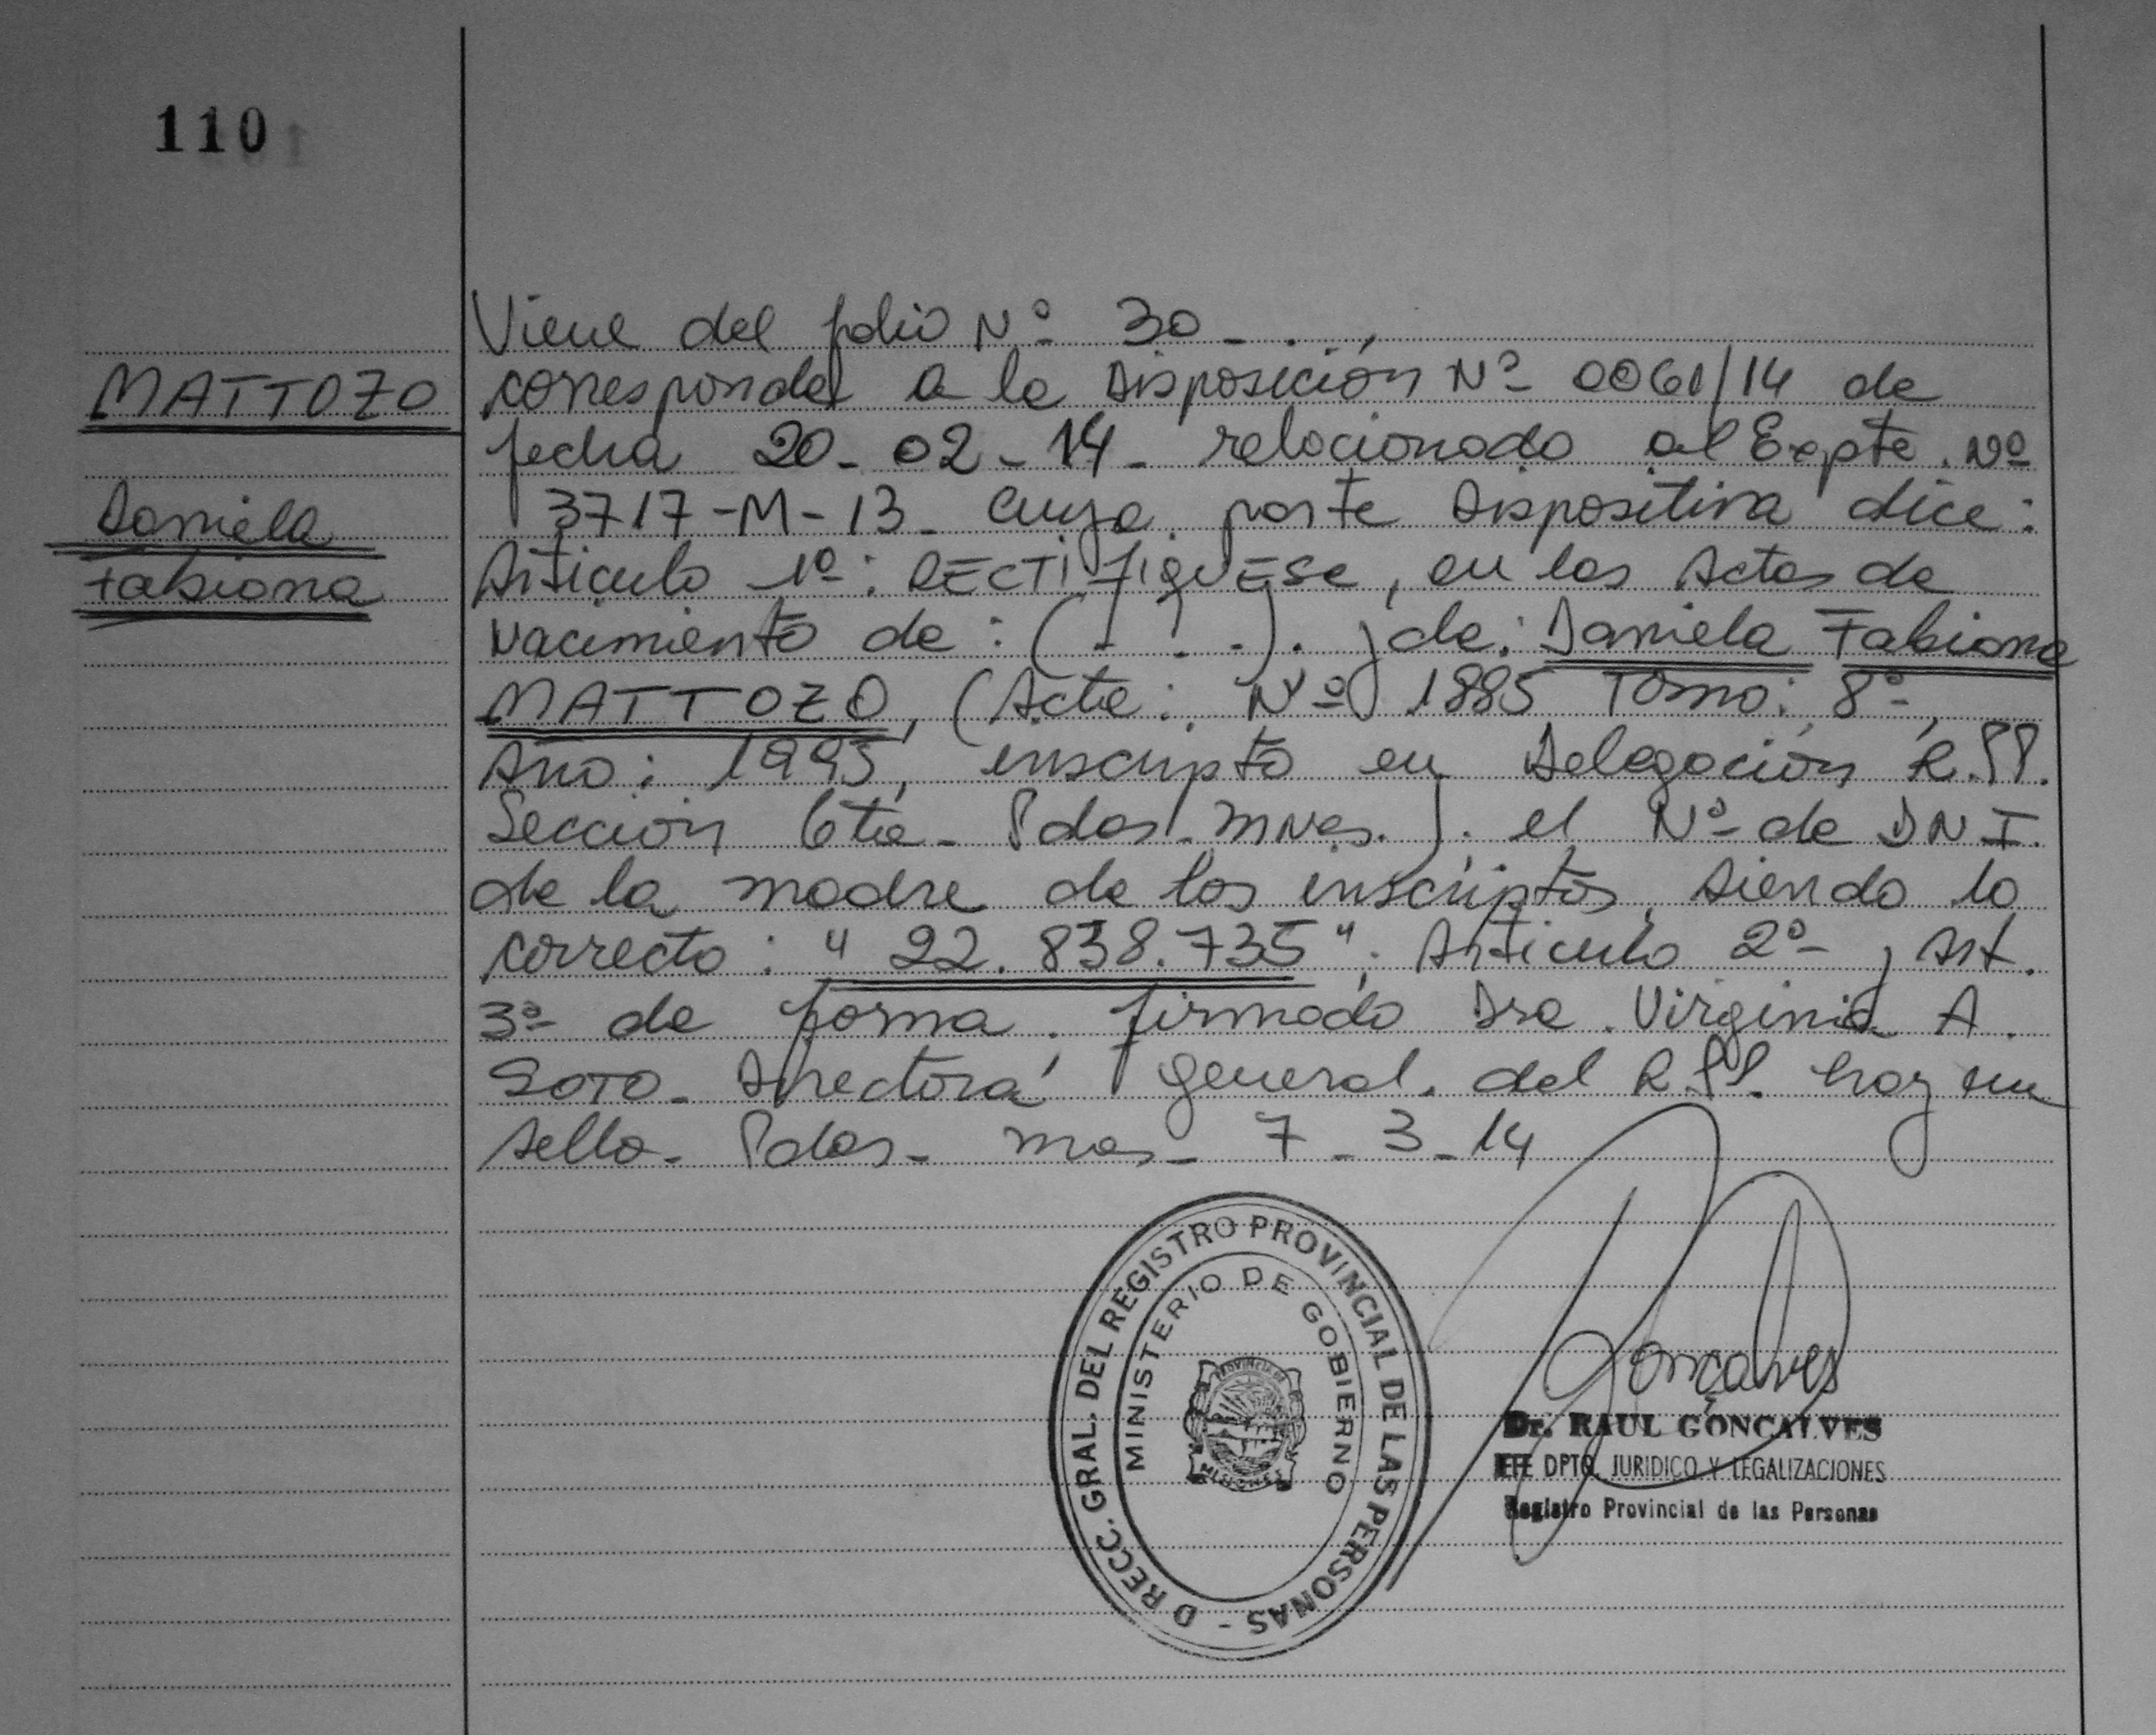 110
MATTOZO
Daniela
Fabiana
Viene del folio Nº 30 - . . ,
corresponde a la Disposición Nº 0061/14 de
fecha 20-02-14- relacionado al Expte. Nº
3717-M-13- cuya parte Dispositiva dice:
Articulo 1º: RECTIFIQUESE, en las Actas de
Nacimiento de: (- . . -). , de: Daniela Fabiana
MATTOZO, (Acta: Nº 1885 Tomo: 8º,
Año: 1995, inscripto en Delegación R.PP.
Sección 6ta- Pdas- Mnes.). el Nº de DNI.
de la madre de los inscriptos, siendo lo
correcto: "22.838.735"; Articulo 2º, Art.
3º de forma. firmado Dra. Virginia A.
SOTO- Directora general. del R.PP. hay un
sello- Pdas- mns- 7-3-14
DRECC. GRAL. DEL REGISTRO PROVINCIAL DE LAS PERSONAS -
MINISTERIO DE GOBIERNO
PROVINCIA DE
MISIONES
Gonçalves
Dr. RAUL GONÇALVES
JEFE DPTO. JURIDICO Y LEGALIZACIONES
Registro Provincial de las Personas